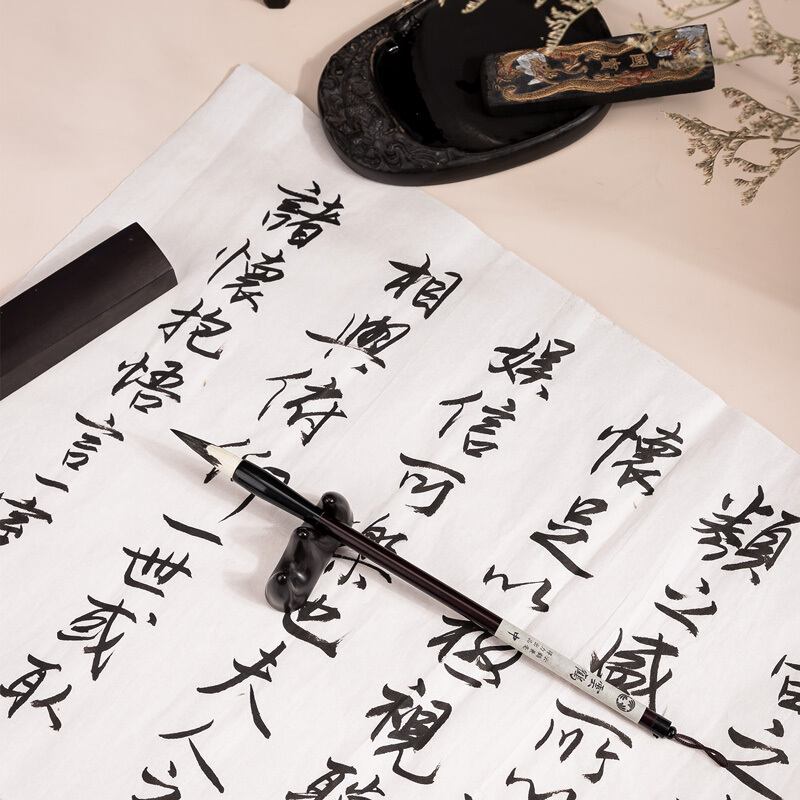 宙之
類之盛所以
懷足以極視聽
娛信可樂也夫人之
相與俯仰一世或取
諸懷抱悟言一室
國寶
雲鶴
中